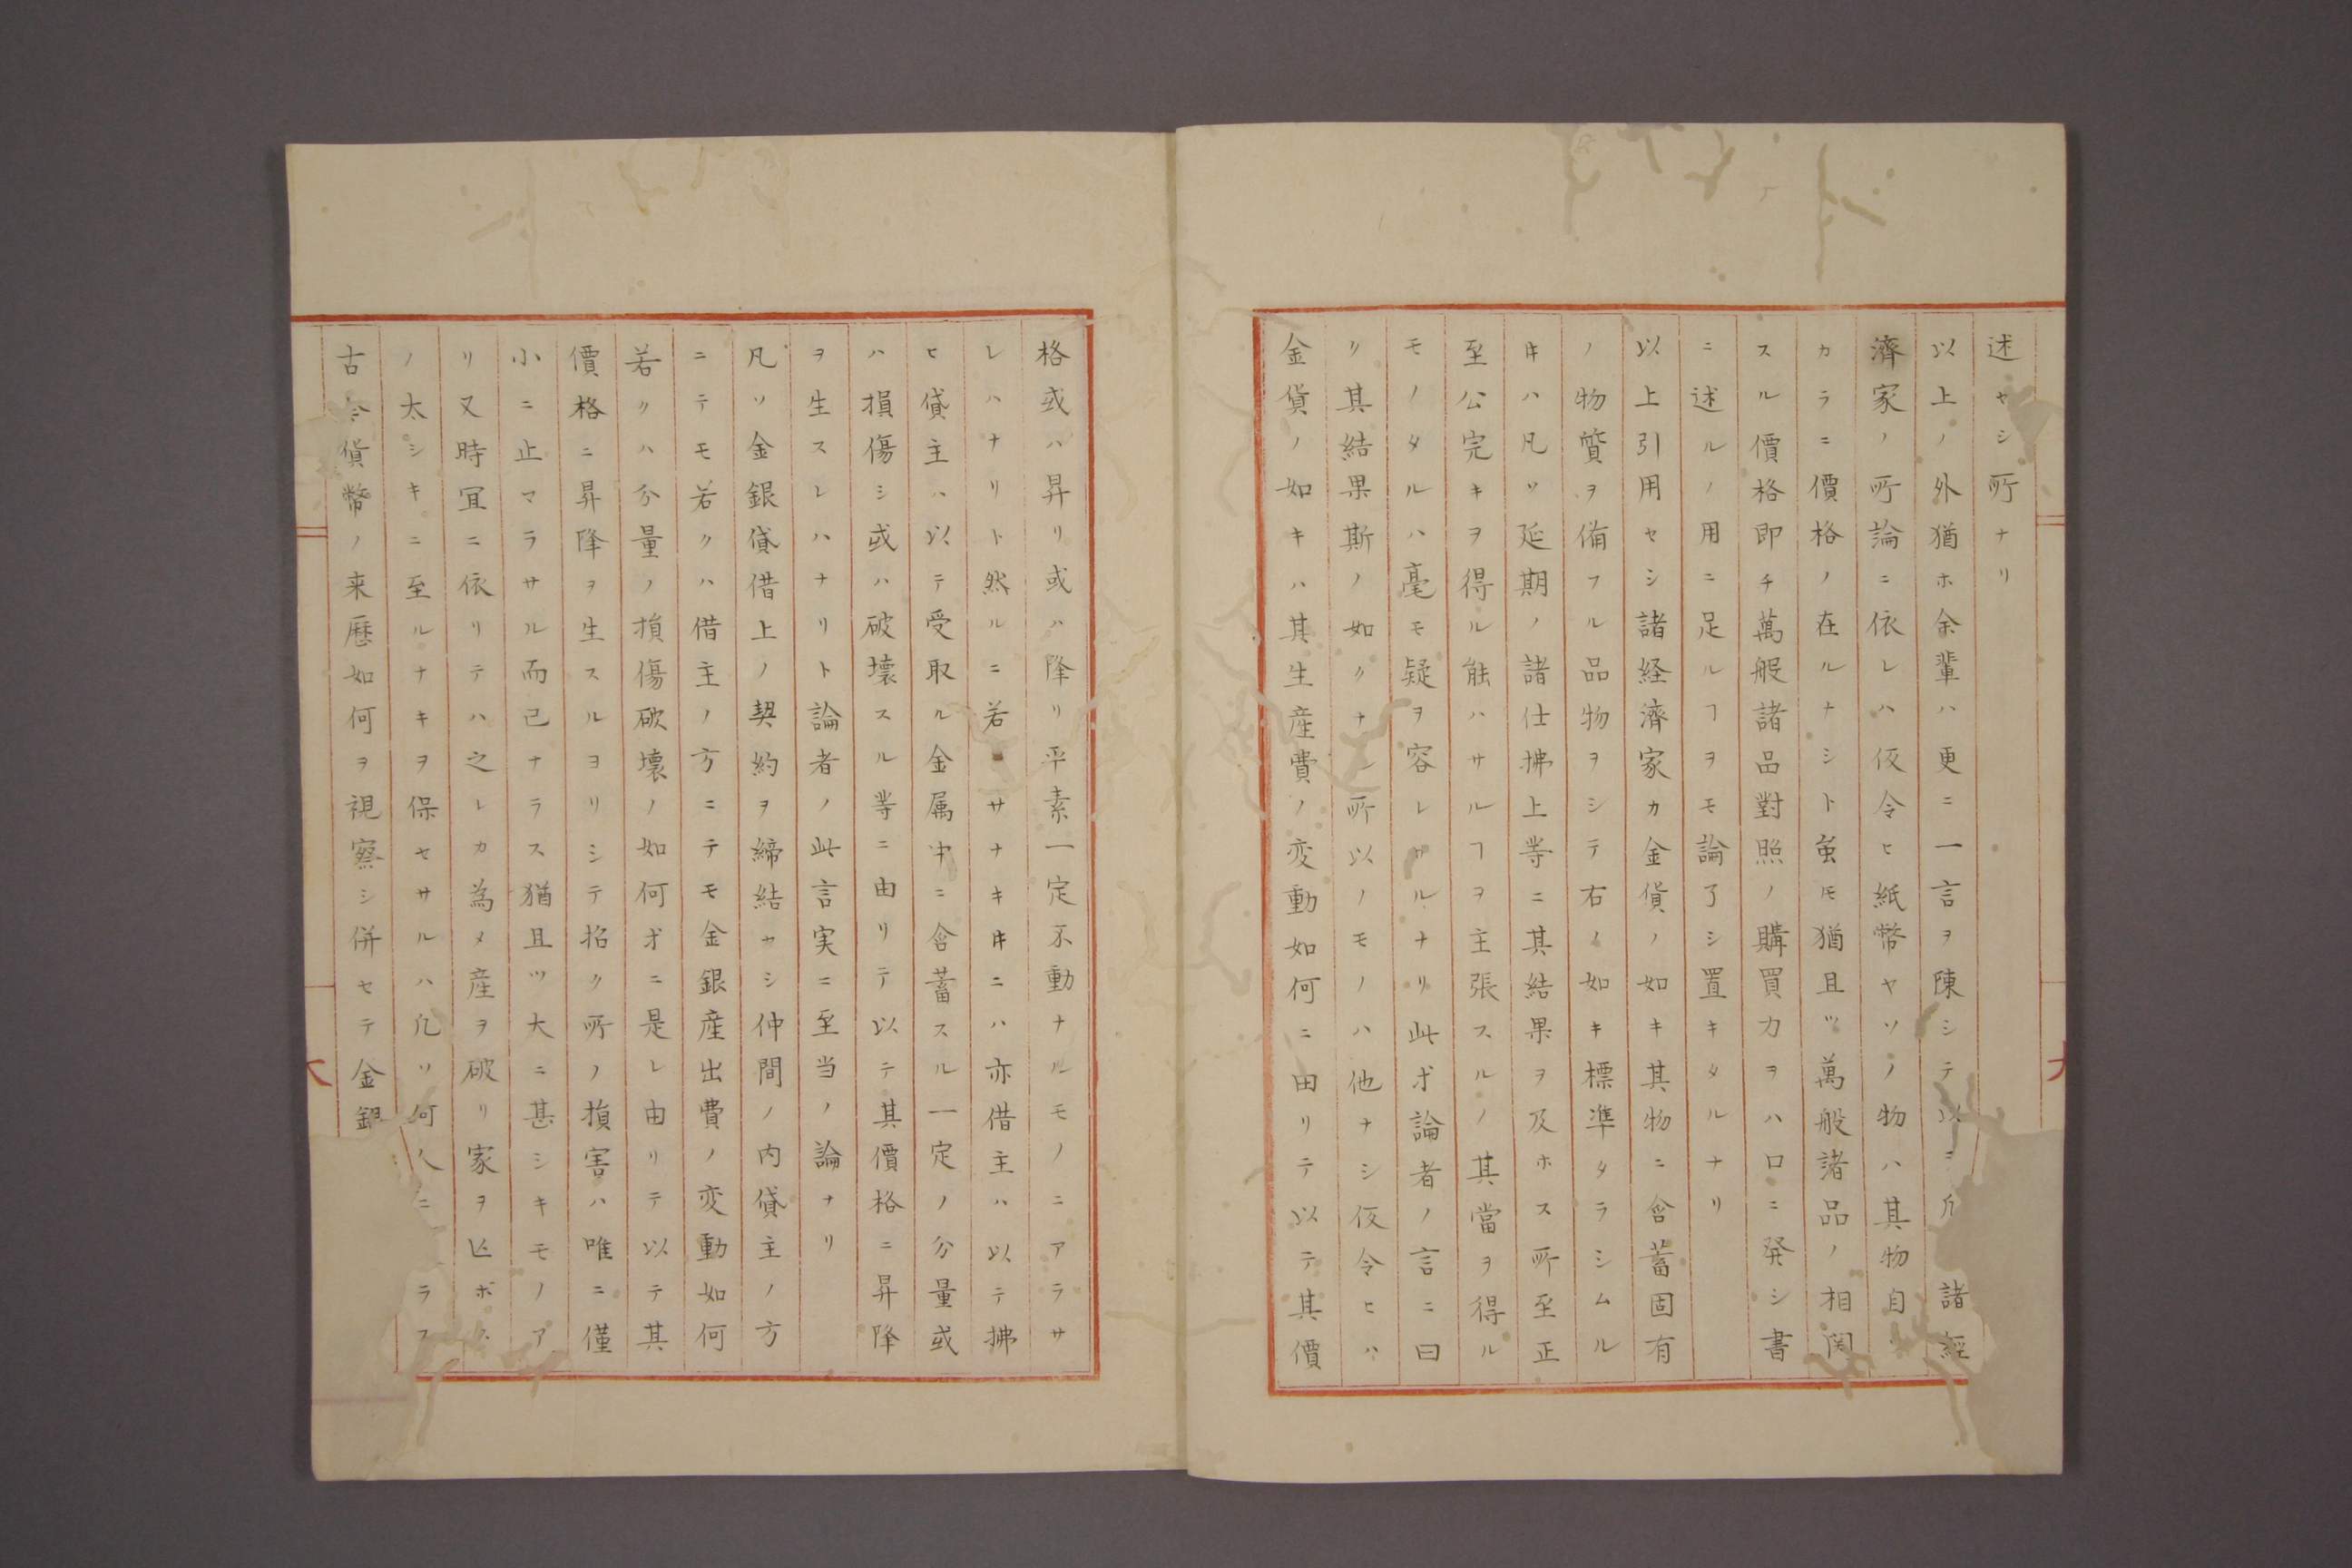 述セシ所ナリ
以上ノ外猶ホ余輩ハ更ニ一言ヲ陳シテ以ニ凡諸經
濟家ノ所論ニ依レハ仮令ヒ紙幣ヤソノ物ハ其物自
カラニ價格ノ在ルナシト虽𪜈猶且ツ萬般諸品ノ相関
スル價格即チ萬般諸品對照ノ購買力ヲハ口ニ発シ書
ニ述ルノ用ニ足ルヿヲモ論了シ置キタルナリ
以上引用セシ諸経濟家カ金貨ノ如キ其物ニ含蓄固有
ノ物質ヲ備フル品物ヲシテ右ノ如キ標準タラシムル
𪜈ハ凡ソ延期ノ諸仕拂上等ニ其結果ヲ及ホス所至正
至公完キヲ得ル能ハサルヿヲ主張スルノ其當ヲ得ル
モノタルハ毫モ疑ヲ容レサルナリ此オ論者ノ言ニ曰
リ其結果斯ノ如クナル所以ノモノハ他ナシ仮令ヒハ
金貨ノ如キハ其生産費ノ変動如何ニ由リテ以テ其價
格或ハ昇リ或ハ降リ平素一定不動ナルモノニアラサ
レハナリト然ルニ若サナキ𪜈ニハ亦借主ハ以テ拂
ヒ貸主ハ以テ受取ル金属中ニ含蓄スル一定ノ分量或
ハ損傷シ或ハ破壊スル等ニ由リテ以テ其價格ニ昇降
ヲ生スレハナリト論者ノ此言実ニ至当ノ論ナリ
凡ソ金銀貸借上ノ契約ヲ締結セシ仲間ノ内貸主ノ方
ニテモ若クハ借主ノ方ニテモ金銀産出費ノ変動如何
若クハ分量ノ損傷破壊ノ如何オニ是レ由リテ以テ其
價格ニ昇降ヲ生スルヨリシテ招ク所ノ損害ハ唯ニ僅
小ニ止マラサル而已ナラス猶且ツ大ニ甚シキモノア
リ又時宜ニ依リテハ之レカ為メ産ヲ破リ家ヲ亡ボス
ノ太シキニ至ルナキヲ保セサルハ凡ソ何人ニラス
古今貨幣ノ来歴如何ヲ視察シ併セテ金銀